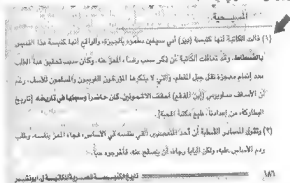 المسيحية
(١) قالت الكاتبة أنها كنيسة (دير) أبي سيفين بطموه بالجيزة، والواقع أنها كنيسة هذا القديس
بالفسطاط. وقد تناقلت الكاتبة عن ذكر سبب رضاء المعز عنه. وكان سبب تحقيق هذا الطلب
بعد إتمام معجزة نقل جبل المقطم، والتي لا ينكرها المؤرخون الغربيون والمسلمون للأسف، رغم
أن الأسقف ساويرس (ابن المقفع) أسقف الأشمونين، كان حاضراً وسجلها في تاريخه (تاريخ
البطاركة، من إعدادنا، طبع مكتبة المحبة).
(٢) وتقول المصادر القبطية أن أحد المتعصبين ألقى بنفسه في الأساس، فجاء المعز بنفسه، وطلب
ردم الأساس عليه، ولكن البابا رجاه أن يصفح عنه، فأخرجوه حياً.
١٨٦